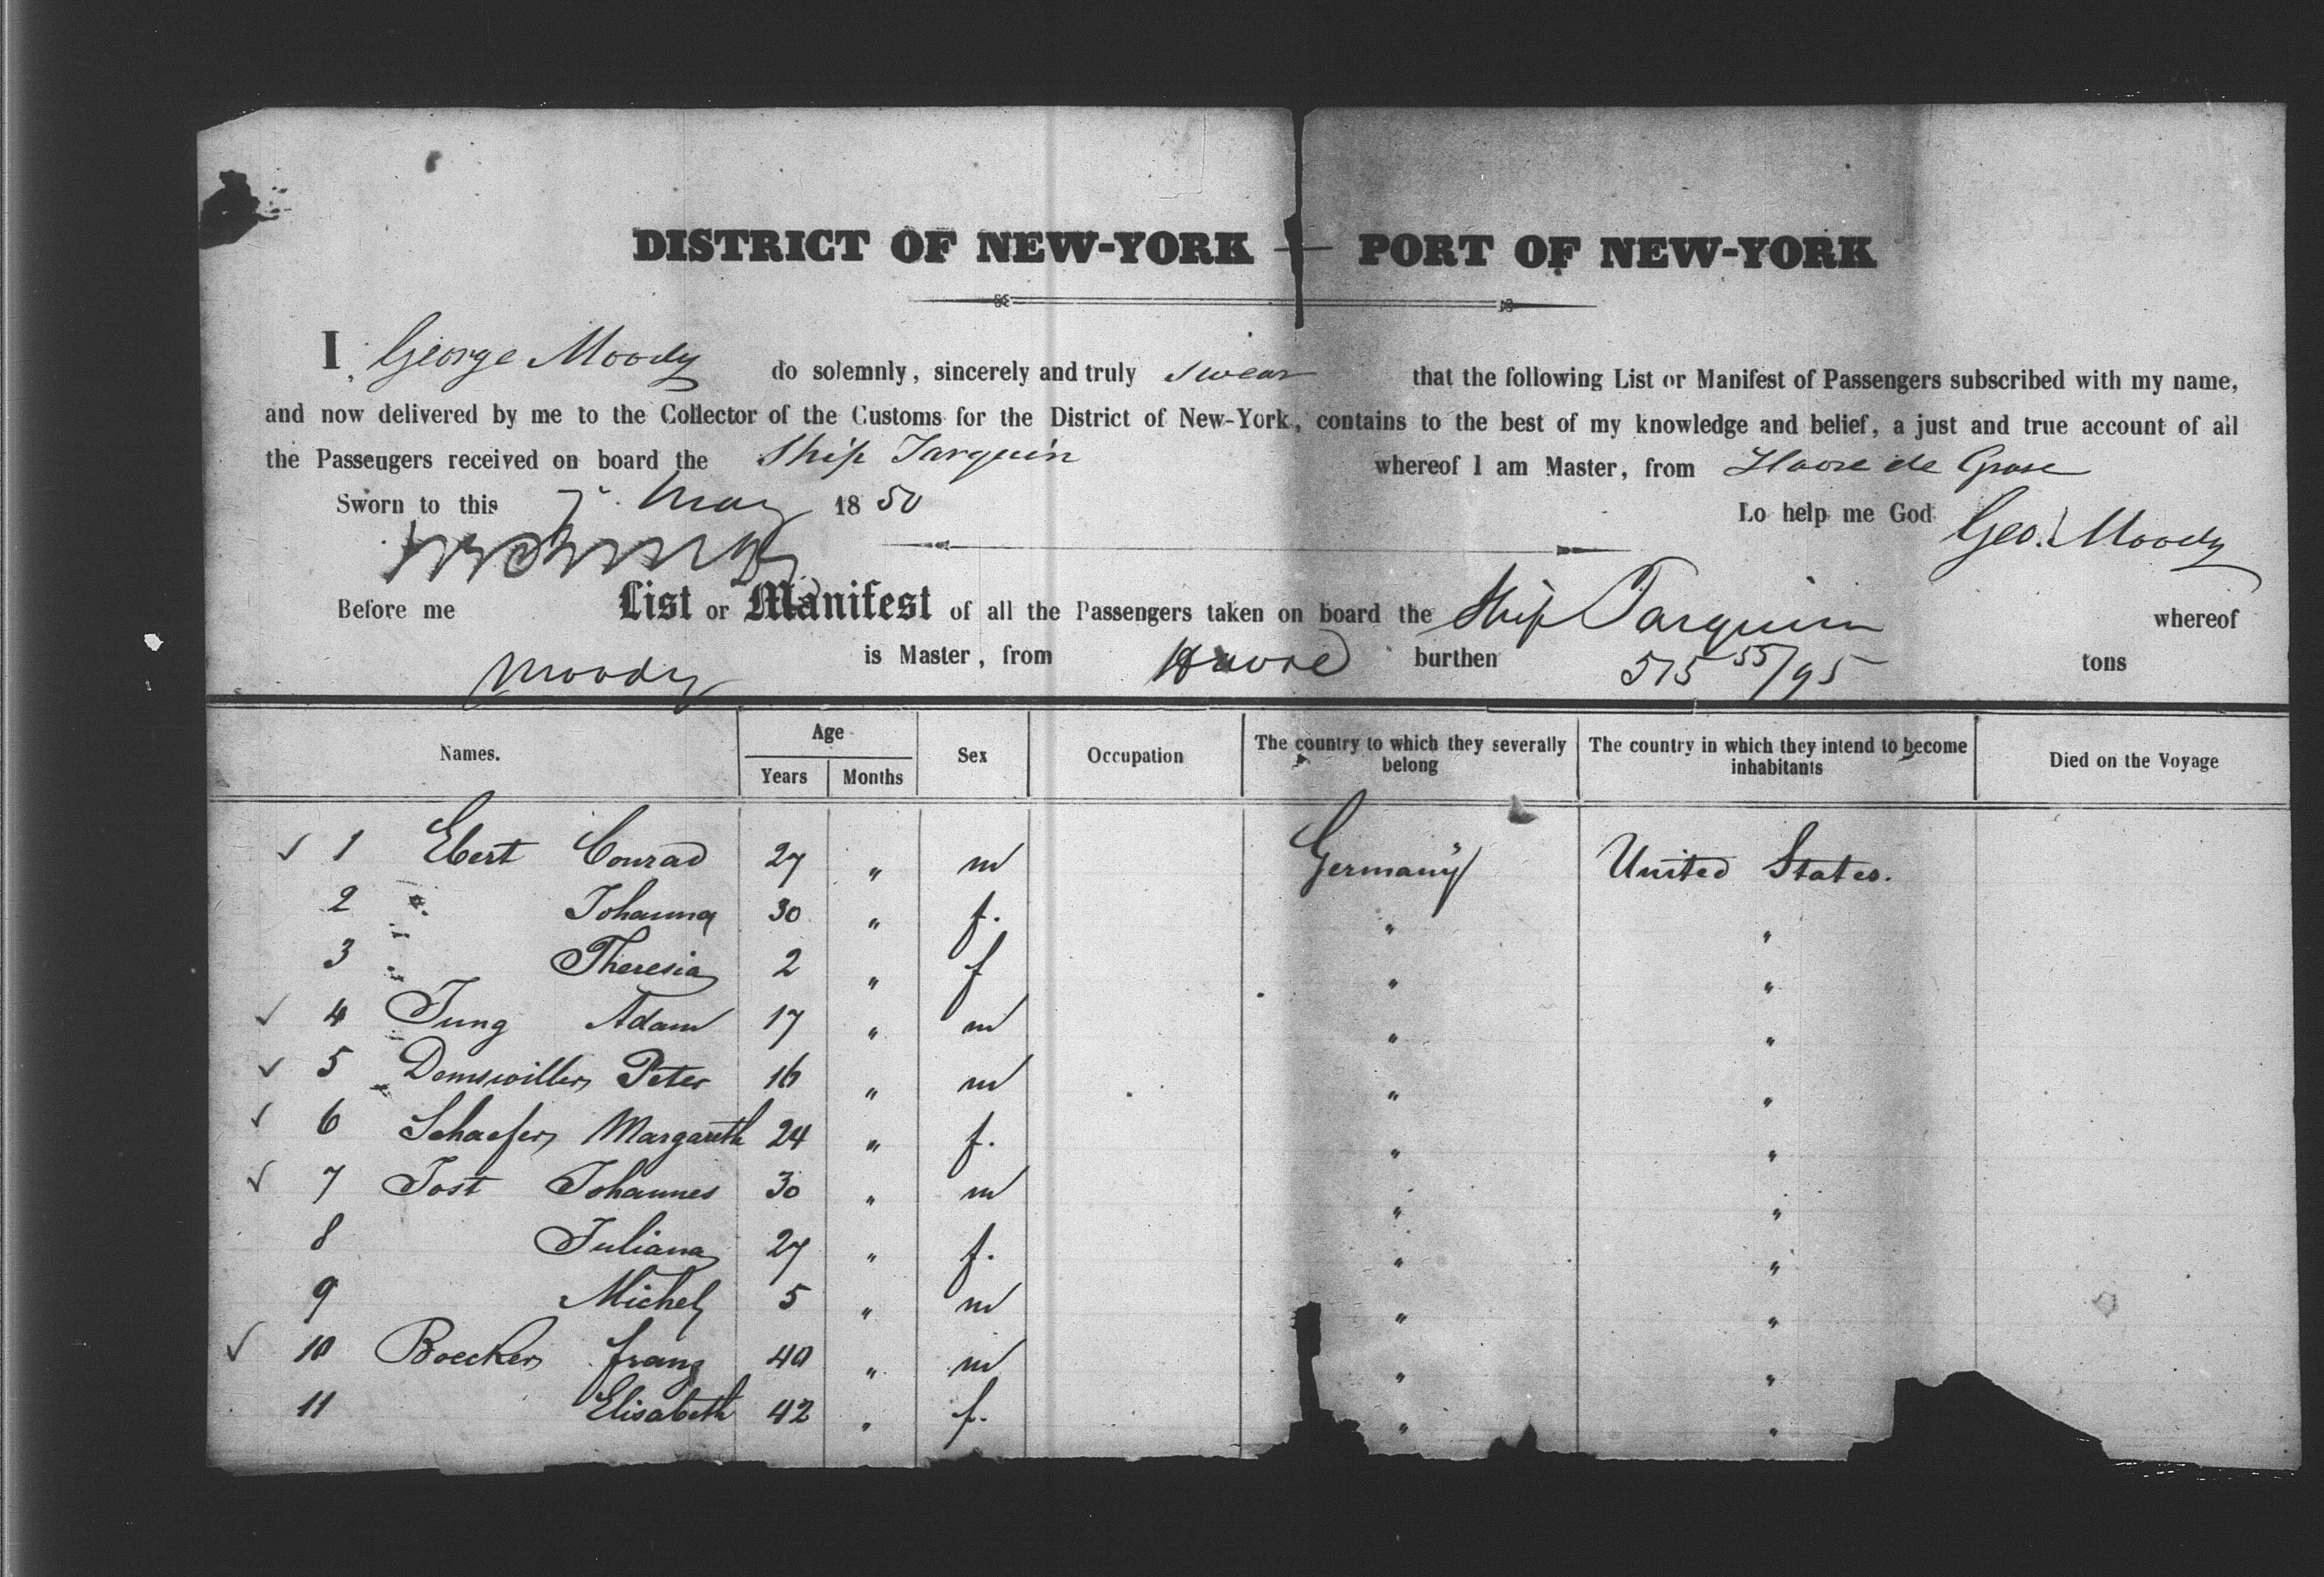 DISTRICT OF NEW-YORK — PORT OF NEW-YORK
I, George Moody do solemnly, sincerely and truly swear that the following List or Manifest of Passengers subscribed with my name,
and now delivered by me to the Collector of the Customs for the District of New-York, contains to the best of my knowledge and belief, a just and true account of all
the Passengers received on board the Ship Tarquin whereof I am Master, from Havre de Grase
Sworn to this 7 May 1850 Lo help me God Geo. Moody
Before me List or Manifest of all the Passengers taken on board the Ship Tarquin whereof
Moody is Master, from Havre burthen 515 55/95 tons
Names. Age Years Months Sex Occupation The country to which they severally belong The country in which they intend to become inhabitants Died on the Voyage
✓ 1 Ebert Conrad 27 " m Germany United States.
2 " Johanna 30 " f. " "
3 " Theresia 2 " f " "
✓ 4 Jung Adam 17 " m " "
✓ 5 Peter 16 " m " "
✓ 6 Schaefer Margareth 24 " f. " "
✓ 7 Jost Johannes 30 " m " "
8 Juliana 27 " f. " "
9 Michel 5 " m " "
✓ 10 Boecker franz 40 " m " "
11 Elisabeth 42 " f. " "